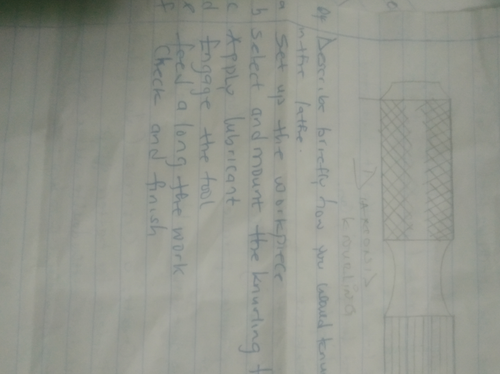 Describe briefly how you would knu
in the lathe.
a Set up the workpiece
b select and mount the knurling t
c Apply lubricant
d Engage the tool
e feed a long the work
f Check and finish
Diamond
knurling